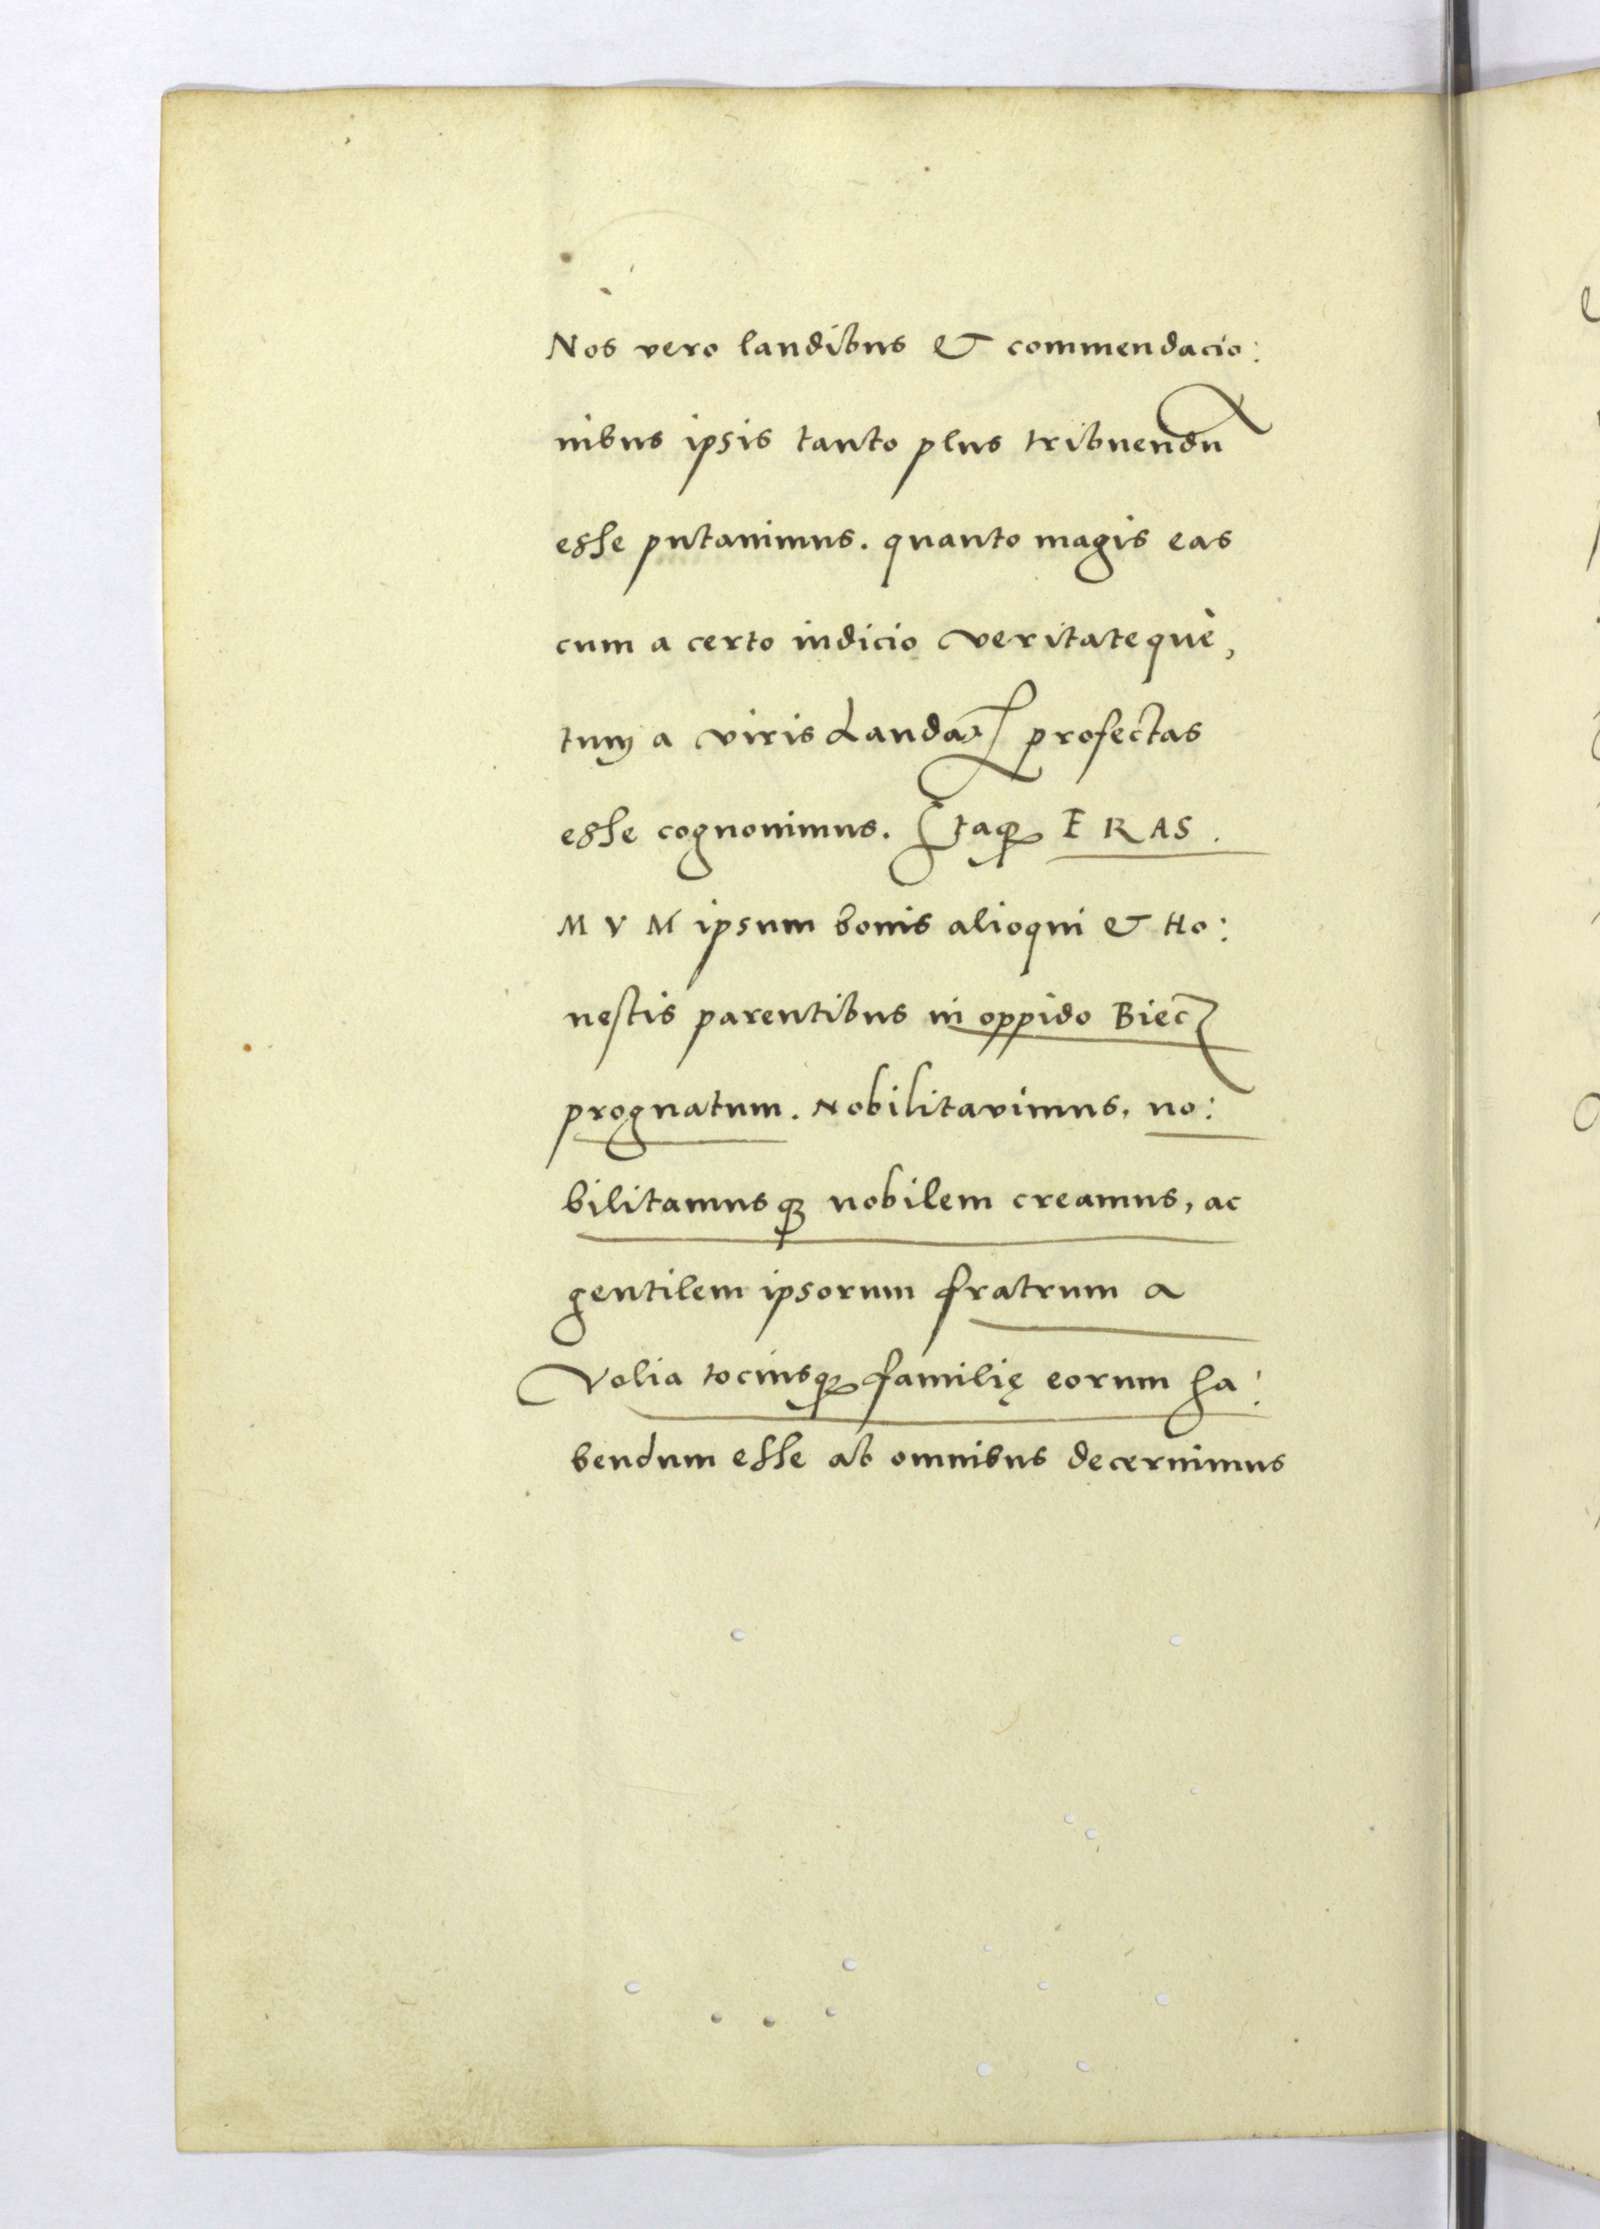 Nos vero laudibus & commendacio:
nibus ipsis tanto plus tribuendū
esse putauimus. quanto magis eas
cum a certo iudicio veritateque,
tum a viris Laudaꝝ profectas
esse cognouimus. Itaqꝫ ERAS.
MVM ipsum bonis alioqui & Ho:
nestis parentibus in oppido Biecz
prognatum. Nobilitavimus, no:
bilitamusqꝫ nobilem creamus, ac
gentilem ipsorum fratrum a
Volia tociusqꝫ familię eorum ha:
bendum esse ab omnibus decernimus